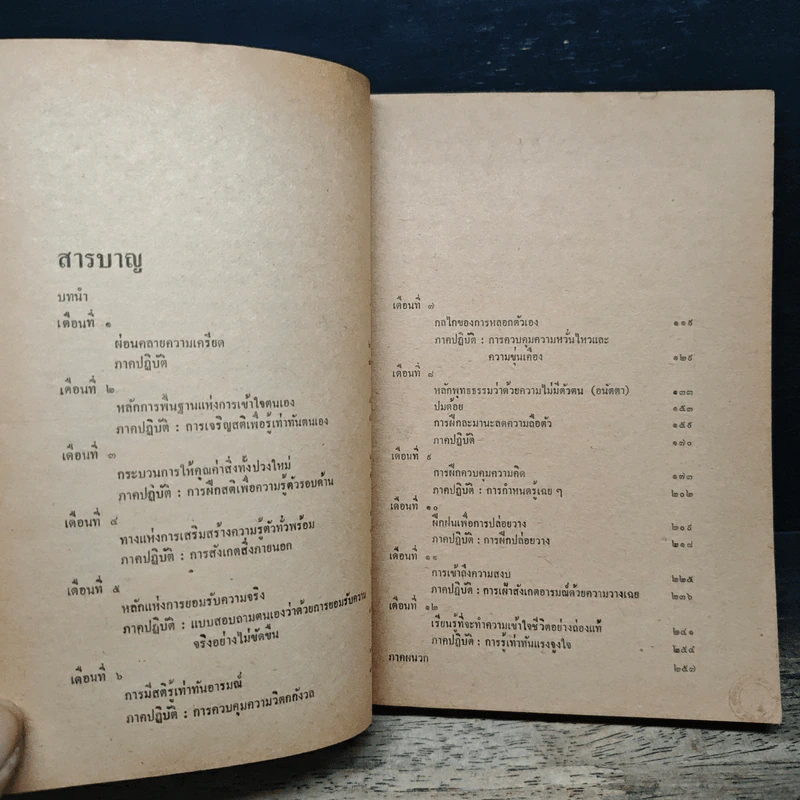 สารบาญ
บทนำ
เดือนที่ ๑
ผ่อนคลายความเครียด
ภาคปฏิบัติ
เดือนที่ ๒
หลักการพื้นฐานแห่งการเข้าใจตนเอง
ภาคปฏิบัติ : การเจริญสติเพื่อรู้เท่าทันตนเอง
เดือนที่ ๓
กระบวนการให้คุณค่าสิ่งทั้งปวงใหม่
ภาคปฏิบัติ : การฝึกสติเพื่อความรู้ตัวรอบด้าน
เดือนที่ ๔
ทางแห่งการเสริมสร้างความรู้ตัวทั่วพร้อม
ภาคปฏิบัติ : การสังเกตสิ่งภายนอก
เดือนที่ ๕
หลักแห่งการยอมรับความจริง
ภาคปฏิบัติ : แบบสอบถามตนเองว่าด้วยการยอมรับความ
จริงอย่างไม่ขัดขืน
เดือนที่ ๖
การมีสติรู้เท่าทันอารมณ์
ภาคปฏิบัติ : การควบคุมความวิตกกังวล
เดือนที่ ๗
กลไกของการหลอกตัวเอง ๑๑๙
ภาคปฏิบัติ : การควบคุมความหวั่นไหวและ
ความขุ่นเคือง ๑๒๙
เดือนที่ ๘
หลักพุทธธรรมว่าด้วยความไม่มีตัวตน (อนัตตา) ๑๓๓
ปมด้อย ๑๕๓
การฝึกละมานะลดความถือตัว ๑๕๙
ภาคปฏิบัติ ๑๗๐
เดือนที่ ๙
การฝึกควบคุมความคิด ๑๗๓
ภาคปฏิบัติ : การกำหนดรู้เฉย ๆ ๒๐๒
เดือนที่ ๑๐
ฝึกฝนเพื่อการปล่อยวาง ๒๐๙
ภาคปฏิบัติ : การฝึกปล่อยวาง ๒๑๘
เดือนที่ ๑๑
การเข้าถึงความสงบ ๒๒๕
ภาคปฏิบัติ : การเฝ้าสังเกตอารมณ์ด้วยความวางเฉย ๒๓๖
เดือนที่ ๑๒
เรียนรู้ที่จะทำความเข้าใจชีวิตอย่างถ่องแท้ ๒๔๑
ภาคปฏิบัติ : การรู้เท่าทันแรงจูงใจ ๒๕๔
ภาคผนวก ๒๕๗